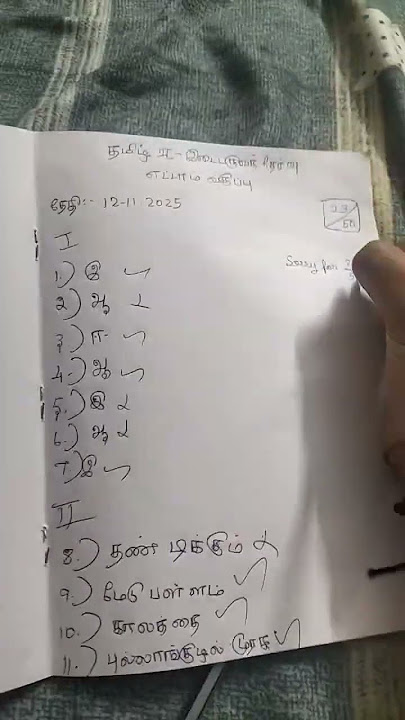 தமிழ் II - இடைபருவ தேர்வு
எட்டாம் வகுப்பு
தேதி:- 12-11 2025
23/50
Sorry for
I
1.) இ
2.) ஆ
3.) ஈ
4.) ஆ
5.) இ
6.) ஆ
7.) இ
II
8.) தண் டிக்கும்
9.) மேடு பள்ளம்
10.) காலத்தை
11.)